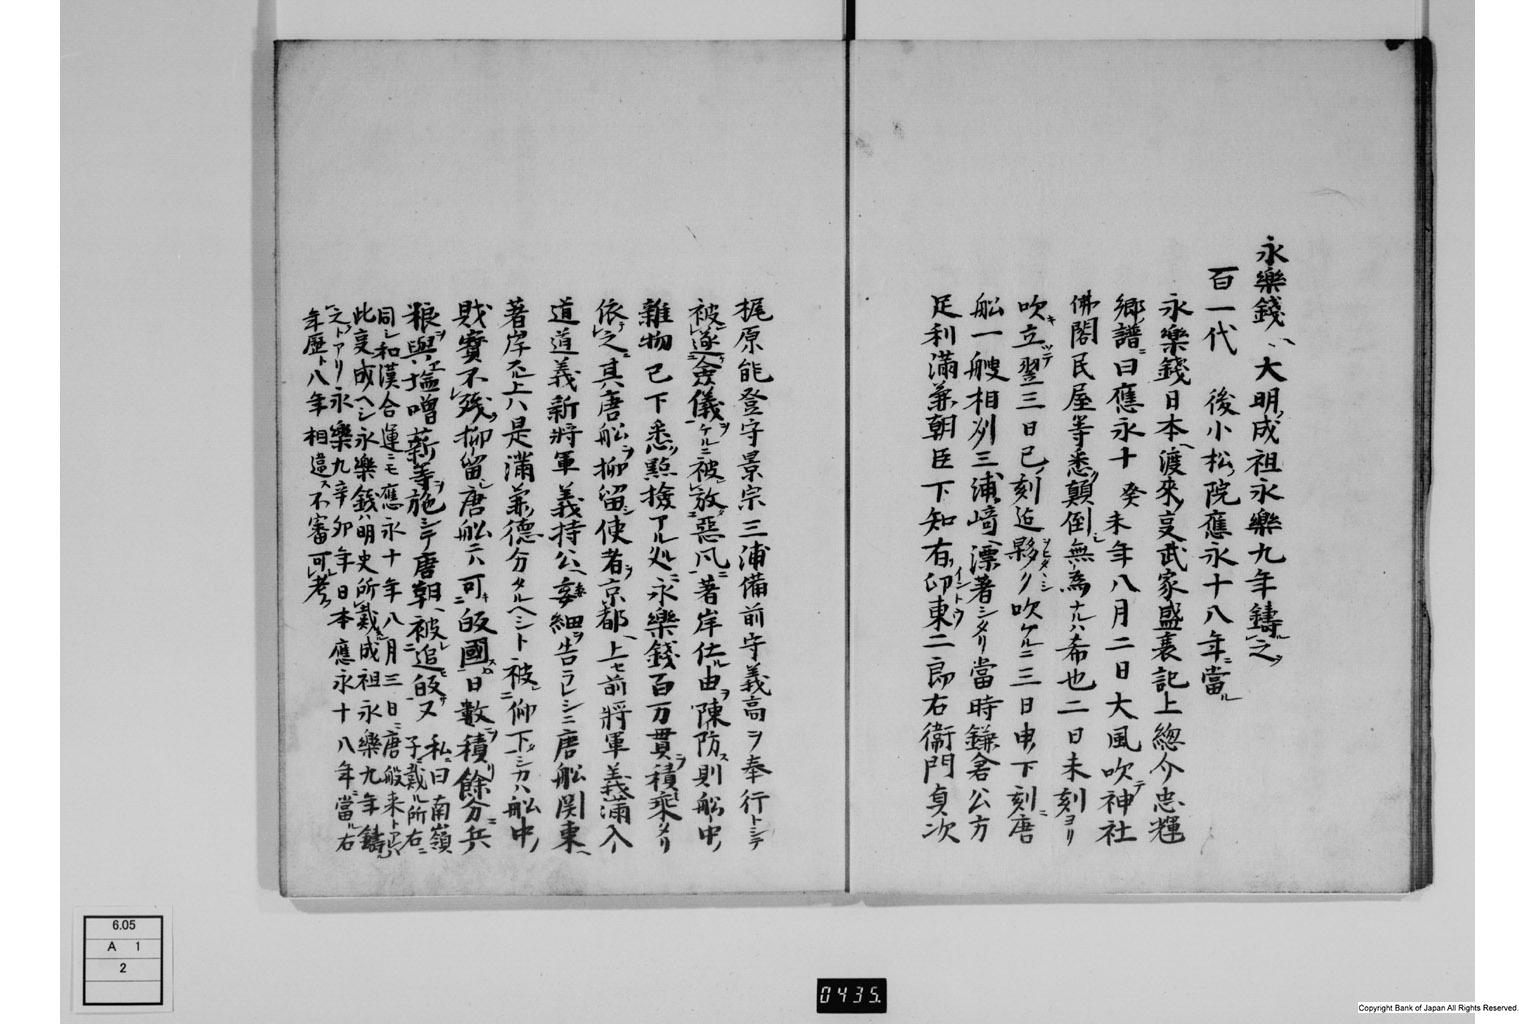 永樂錢ハ大明成祖永樂九年鑄ル之ヲ
百一代 後小松院應永十八年ニ當ル
永樂錢日本ヘ渡來ノ㕝武家盛衰記上總介忠輝
鄉譜ニ曰應永十癸未年八月二日大風吹テ神社
佛閣民屋等悉ク顛倒シ無為ナルハ希也二日未刻ヨリ
吹キ立ツテ翌三日巳ノ刻迄夥ヲビタヽシク吹ケルニ三日申ノ下刻ニ唐
舩一艘相刕三浦ノ﨑ヘ漂著シタリ當時鎌倉公方
足利滿兼朝臣下知有ツ印東イントウ二郎右衞門貞次
梶原能登守景宗三浦備前守義高ヲ奉行トシテ
被遂僉儀ヲケルニ被放惡風ニ著岸仕ル由ヲ陳防ス則舩中ノ
雜物已下悉ク點撿アル処ニ永樂錢百万貫積ミ乘セタリ
依之ニ其唐舩ヲ抑留シ使者ヲ京都ヘ上セ前將軍義滿入
道道義新將軍義持公ヘ委細ヲ告ラレシニ唐舩関東ヘ
著岸スル上ハ是滿兼ノ德分タルヘシト被仰下シカハ舩中ノ
財寳不殘抑留シ唐舩ニハ可キ皈國ス日數ヲ積リ餘分ニ兵
粮ヲ與ヘ塩噌薪等ヲ施シテ唐朝ヘ被追皈又 私ニ曰南嶺子ニ戴ル所右ニ
同シ和漢合運ニモ應永十年八月三日ニ唐般来トアレハ
此㕝成ヘシ永樂錢ハ明史所戴成祖永樂九年鑄
之トアリ永樂九辛卯年日本應永十八年ニ當ル右
年歷ト八年相違ス不審可考
6.05
A 1
2
0435.
Copyright Bank of Japan All Rights Reserved.